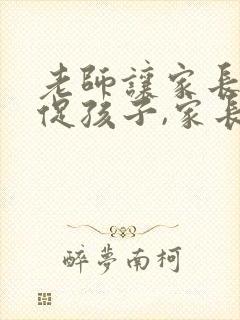 老師讓家長
促孩子,家長
醉夢南柯